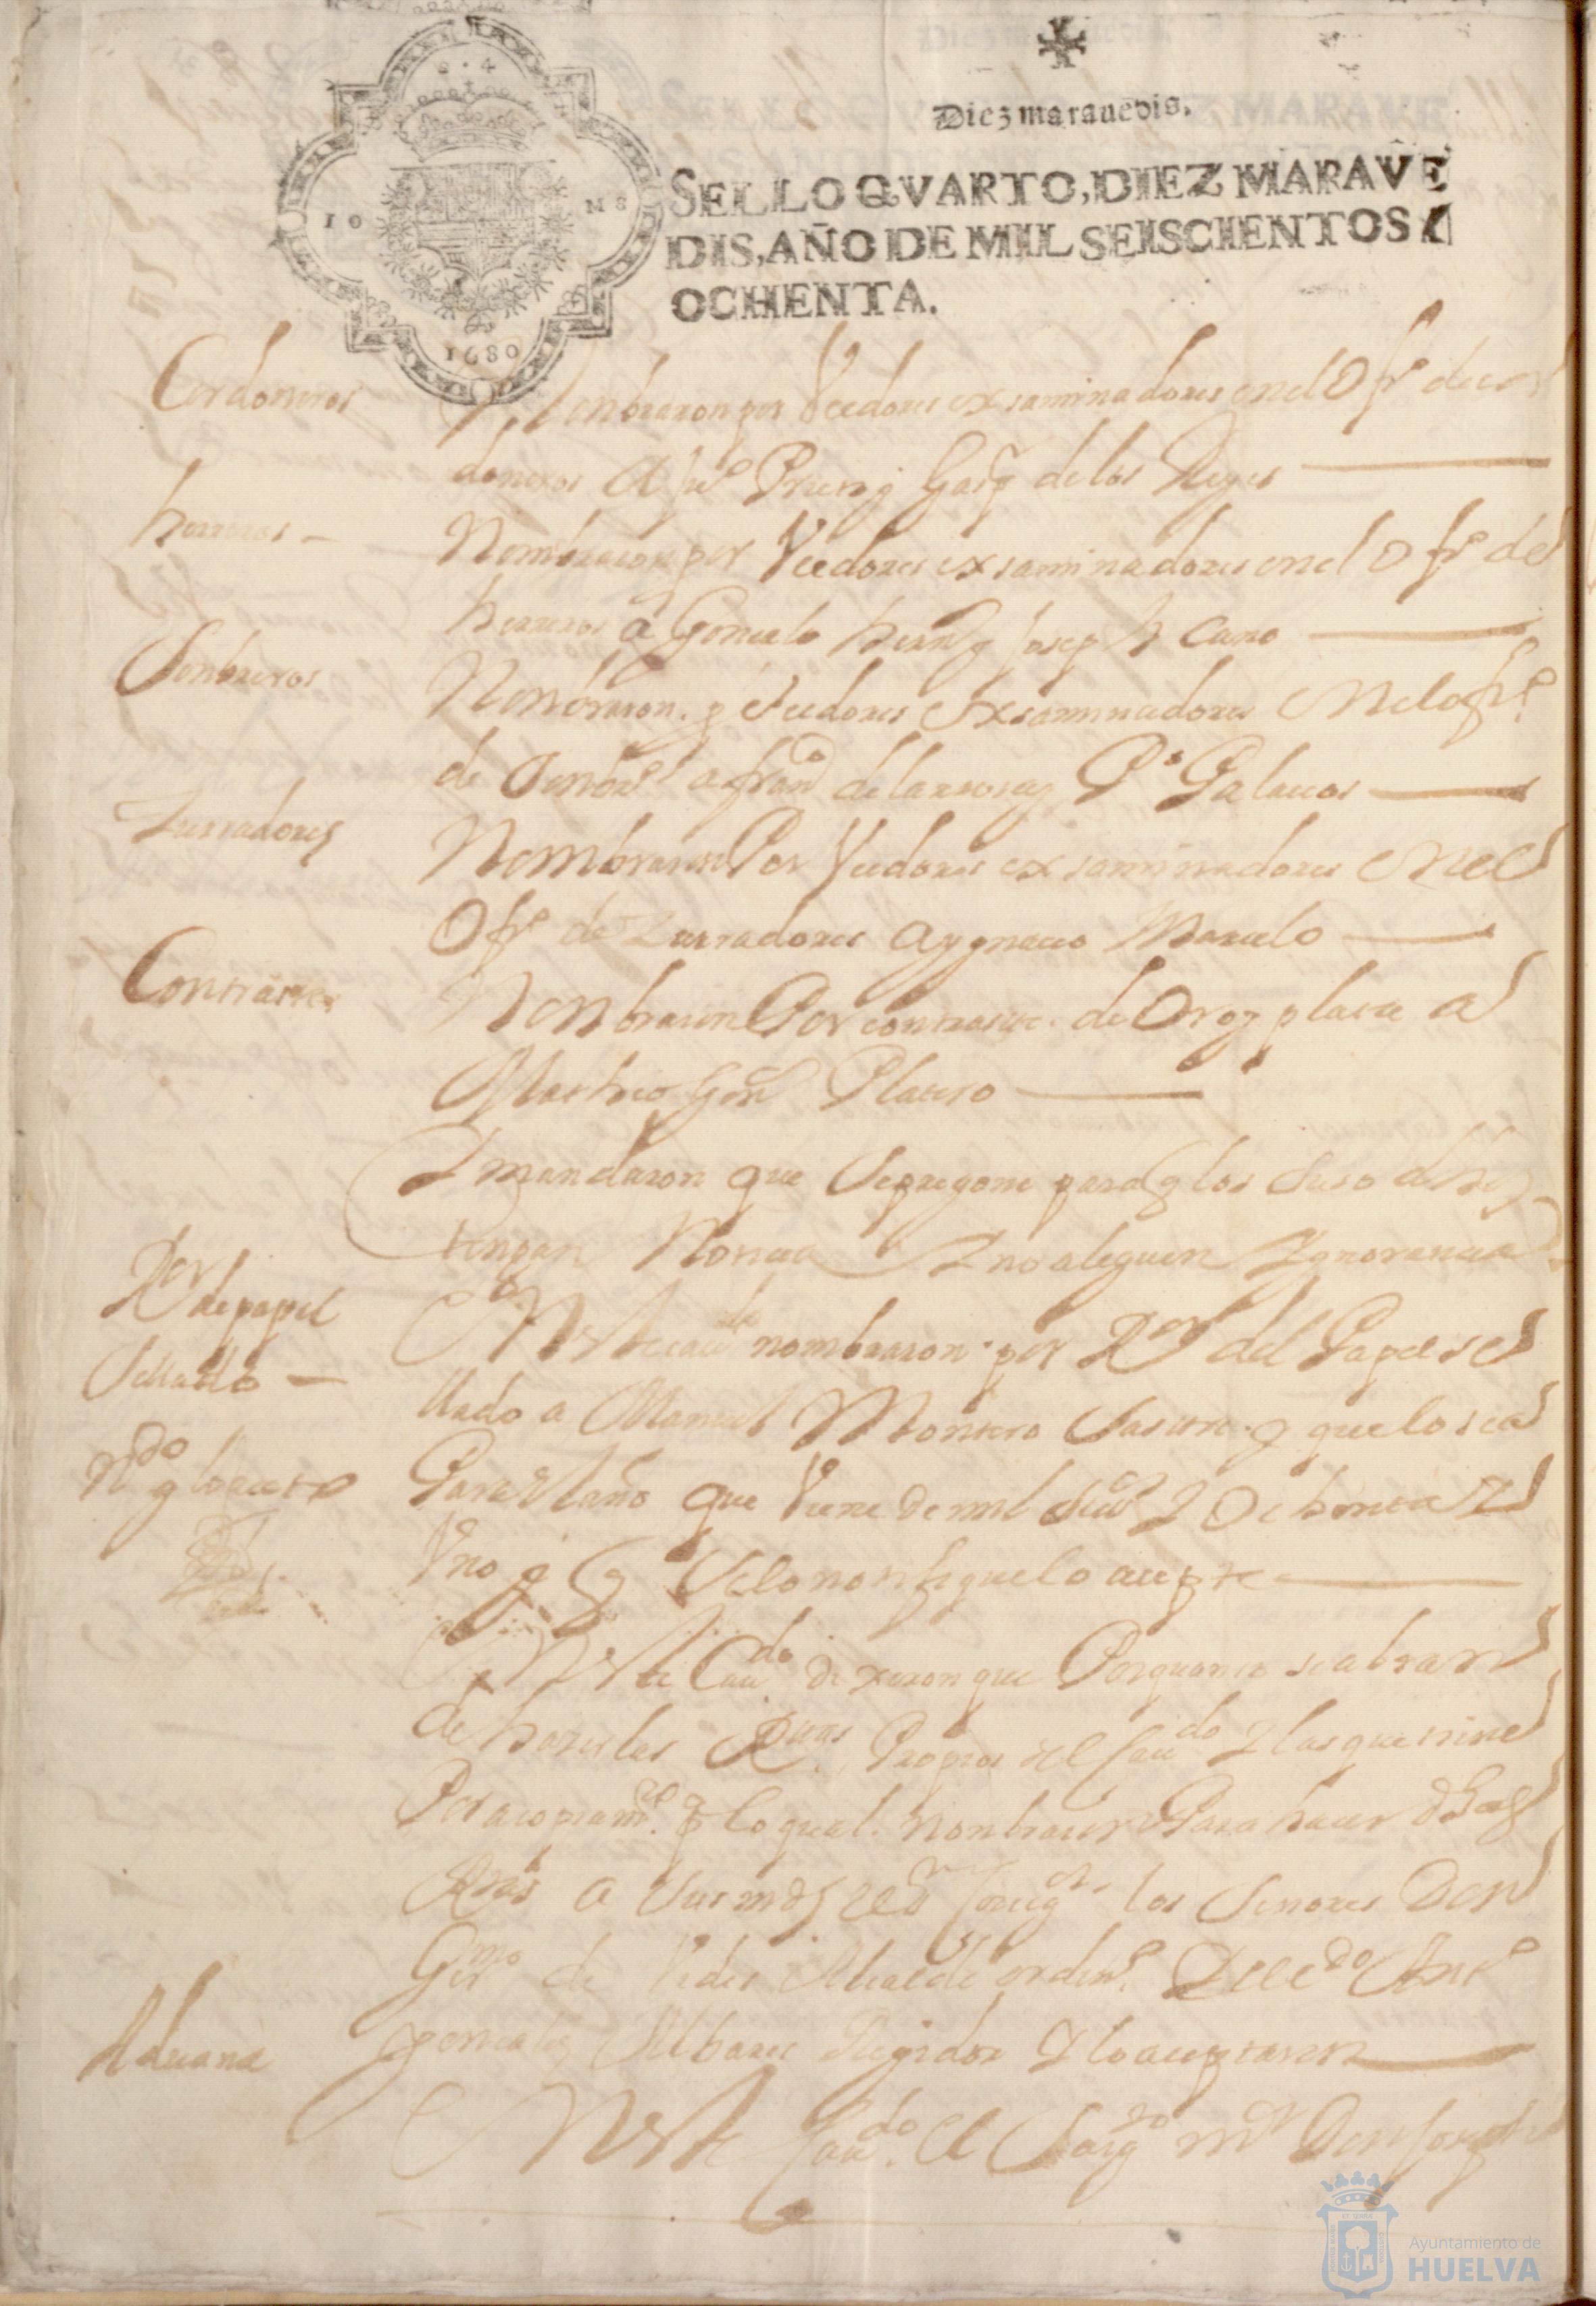 Diez maravedis.
SELLO QVARTO, DIEZ MARAVE
DIS, AÑO DE MIL SEISCIENTOS Y
OCHENTA.
1680
Cordoneros
Nonbraron por Veedores exsaminadores en el Ofiº de cor
doneros A juº Prieto y Gasp de los Reyes
herreros
Nombraron por Veedores exsaminadores en el ofiº de
herreros a Goncalo hernz y Joseph Cano
Sonbreros
Nonbraron p Veedores Exsaminadores En el ofiº
de Sonbrs a franco de la rrosa y Pº Palacios
Zurradores
Nombraron Por Veedores exsaminadores en el
Ofiº de Zurradores a ygnacio Marcelo
Contraste
Nonbraron Por contraste de Oro y plata a
Matheo Platero
Y mandaron que Se pregone para q los Suso dhos
tengan Noticia Y no aleguen Ygnorancia
Ror de papel
Sellado
En Este caudo nombraron por Ror del Papel se
llado a Manuel Montero Sastre y que lo sea
ndo y lo aceto
Para El año que Viene de mil seisos Y Ochenta Y
Uno y q Se lo notifique lo acepte
En Este Caudo dixeron que Por quanto se abran
de hazer las Rtas Propios del Caudo Y las que tiene
Por acopiamto p lo qual nonbraron Para hacer dhas
a Sus mds los Señores Don
Germo de Vides Alcalde ordinº Y Licdo Antº
goncales Albares Regidor Y lo aceptaron
Aduana
En Este Caudo el Sargto mor Don Joseph
Ayuntamiento de
HUELVA